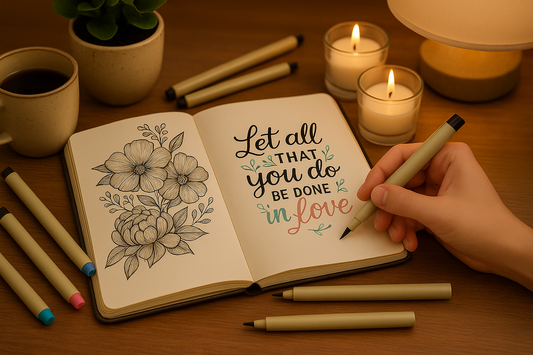 Let all
THAT
you do
BE DONE
in love